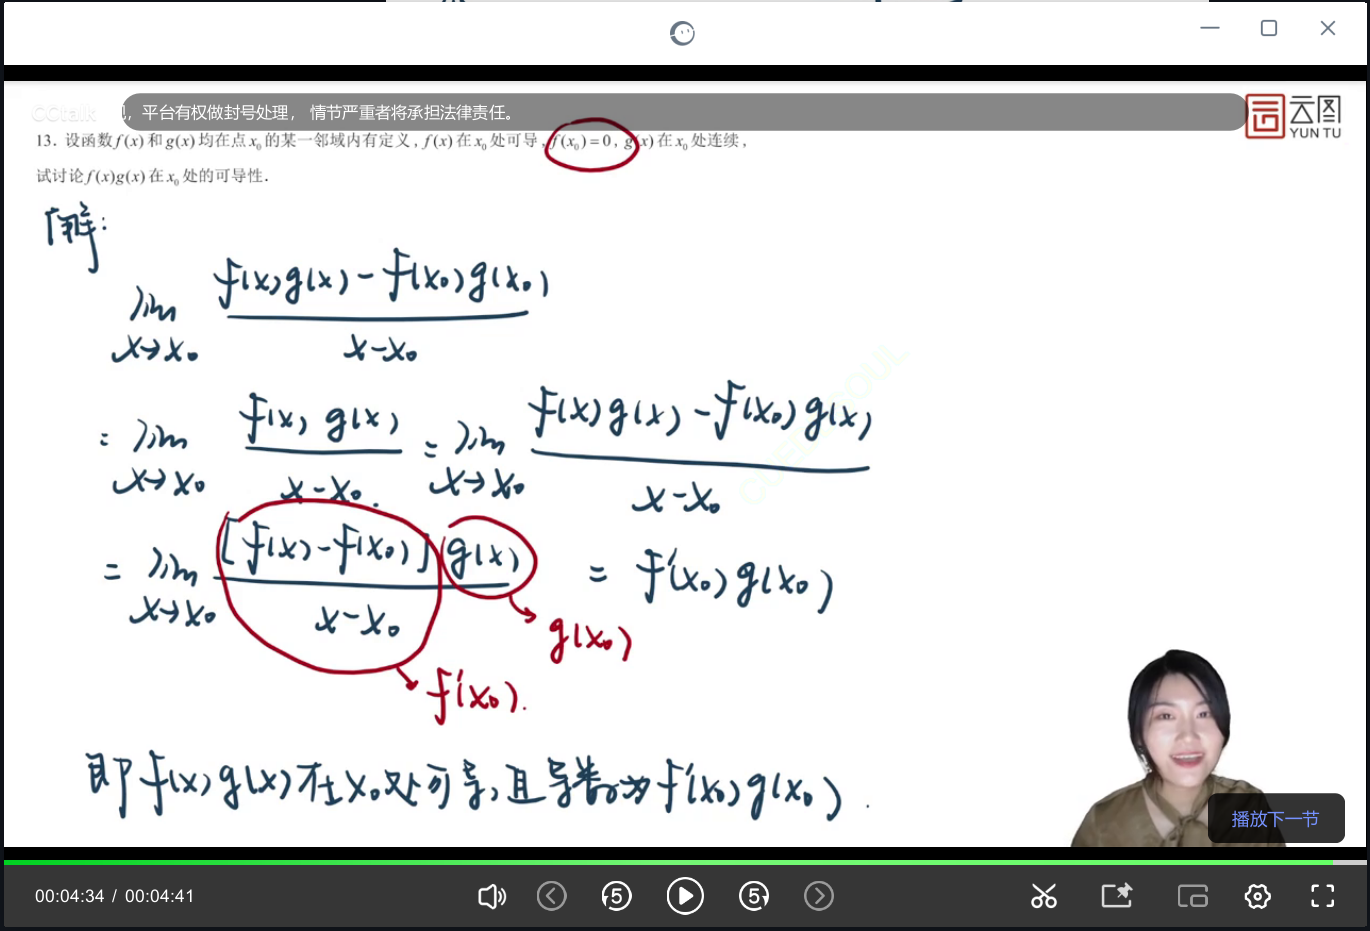 CCtalk
，平台有权做封号处理， 情节严重者将承担法律责任。
云图
YUN TU
13. 设函数f(x)和g(x)均在点x₀的某一邻域内有定义，f(x)在x₀处可导，f(x₀)=0，g(x)在x₀处连续，
试讨论f(x)g(x)在x₀处的可导性.
解:
lim x→x₀ f(x)g(x)-f(x₀)g(x₀) / x-x₀
= lim x→x₀ f(x)g(x) / x-x₀ = lim x→x₀ f(x)g(x)-f(x₀)g(x) / x-x₀
= lim x→x₀ [f(x)-f(x₀)]g(x) / x-x₀ = f'(x₀)g(x₀)
g(x₀)
f'(x₀).
即f(x)g(x)在x₀处可导,且导数为f'(x₀)g(x₀).
播放下一节
00:04:34 / 00:04:41
5 5